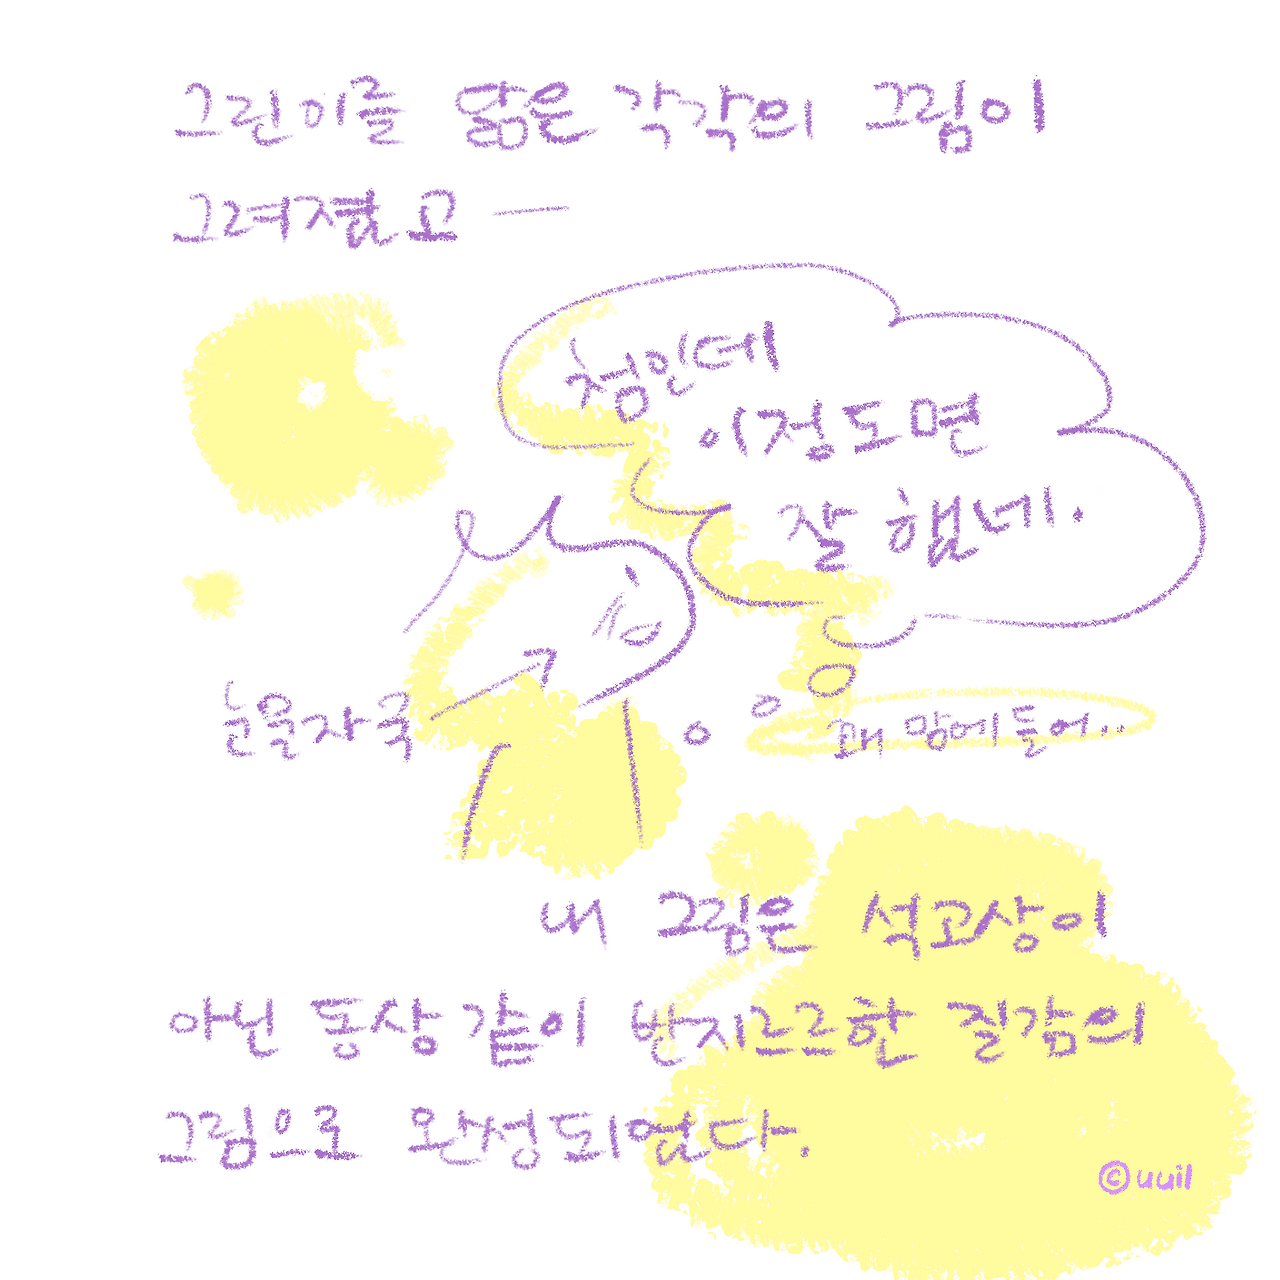 그린이를 닮은 각각의 그림이
그려졌고 —
첨인데
이정도면
잘 했네.
침
눈물자국
꽤 맘에 들어...
내 그림은 석고상이
아닌 동상 같이 반지르르한 질감의
그림으로 완성되었다.
© uuil